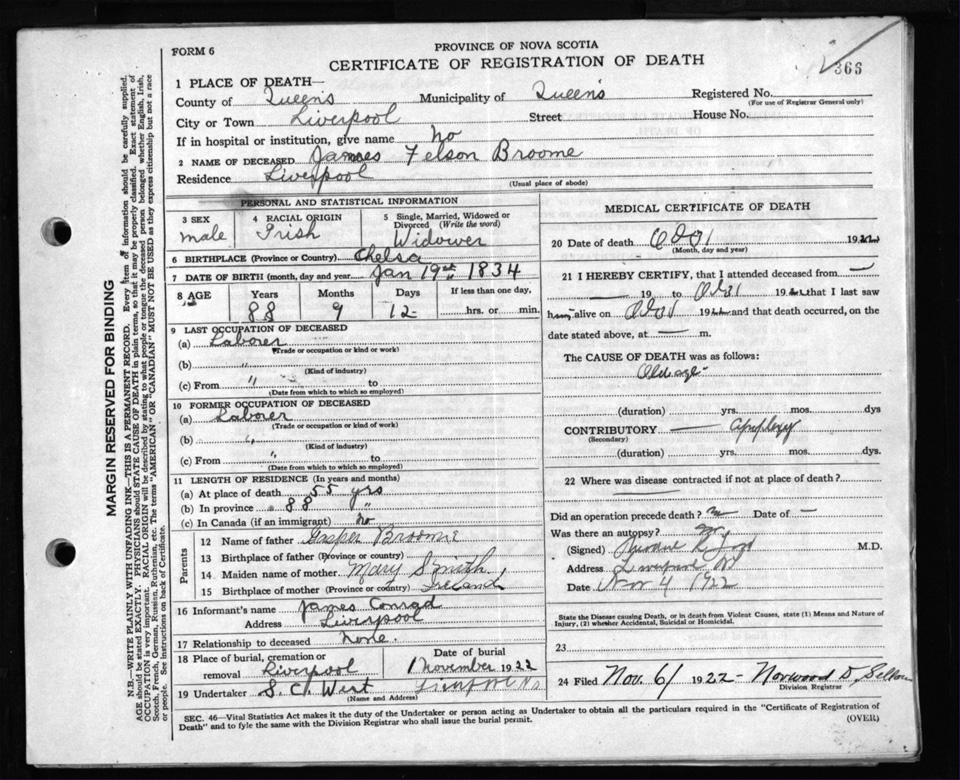 FORM 6
PROVINCE OF NOVA SCOTIA
CERTIFICATE OF REGISTRATION OF DEATH
366
1 PLACE OF DEATH—
County of Queens Municipality of Queens Registered No.
(For use of Registrar General only)
City or Town Liverpool Street House No.
If in hospital or institution, give name No
2 NAME OF DECEASED James Felson Broome
Residence Liverpool
(Usual place of abode)
PERSONAL AND STATISTICAL INFORMATION
3 SEX male
4 RACIAL ORIGIN Irish
5 Single, Married, Widowed or Divorced (Write the word) Widower
6 BIRTHPLACE (Province or Country) Chelsa
7 DATE OF BIRTH (month, day and year) Jan 19th 1834
8 AGE Years Months Days If less than one day,
88 9 12 hrs. or min.
9 LAST OCCUPATION OF DECEASED
(a) Laborer
(Trade or occupation or kind or work)
(b) "
(Kind of industry)
(c) From " to
(Date from which to which so employed)
10 FORMER OCCUPATION OF DECEASED
(a) Laborer
(Trade or occupation or kind or work)
(b) "
(Kind of industry)
(c) From " to
(Date from which to which so employed)
11 LENGTH OF RESIDENCE (In years and months)
(a) At place of death 55 yrs
(b) In province 88 "
(c) In Canada (if an immigrant) No
Parents
12 Name of father Gasper Broome
13 Birthplace of father (Province or country)
14 Maiden name of mother Mary Smith
15 Birthplace of mother (Province or country) Ireland
16 Informant's name James Conrad
Address Liverpool
17 Relationship to deceased None.
18 Place of burial, cremation or removal Liverpool
Date of burial 1 November 1922
19 Undertaker S. C. West Liverpool NS
(Name and Address)
MEDICAL CERTIFICATE OF DEATH
20 Date of death Oct 31 1922
(Month, day and year)
21 I HEREBY CERTIFY, that I attended deceased from —
19 to Oct 31 1922 that I last saw
him alive on Oct 31 1922 and that death occurred, on the
date stated above, at — m.
The CAUSE OF DEATH was as follows:
Old age
(duration) yrs. mos. dys
CONTRIBUTORY — Apoplexy
(Secondary)
(duration) yrs. mos. dys.
22 Where was disease contracted if not at place of death?
Did an operation precede death? no Date of —
Was there an autopsy? no
(Signed) M.D.
Address Liverpool NS
Date Nov 4 1922
State the Disease causing Death, or in death from Violent Causes, state (1) Means and Nature of
Injury, (2) whether Accidental, Suicidal or Homicidal.
23
24 Filed Nov. 6 1922 Norwood D.
Division Registrar
SEC. 46—Vital Statistics Act makes it the duty of the Undertaker or person acting as Undertaker to obtain all the particulars required in the "Certificate of Registration of
Death" and to fyle the same with the Division Registrar who shall issue the burial permit.
(OVER)
MARGIN RESERVED FOR BINDING
N.B.—WRITE PLAINLY WITH UNFADING INK—THIS IS A PERMANENT RECORD. Every item of information should be carefully supplied.
AGE should be stated EXACTLY. PHYSICIANS should STATE CAUSE OF DEATH in plain terms, so that it may be properly classified. Exact statement of
OCCUPATION is very important. RACIAL ORIGIN will be described by stating to what people or tongue the deceased person belonged whether English, Irish,
Scotch, French, German, Russian, Ruthenian, etc. The terms "AMERICAN" or "CANADIAN" MUST NOT BE USED as they express citizenship but not a race
or people. See instructions on back of Certificate.